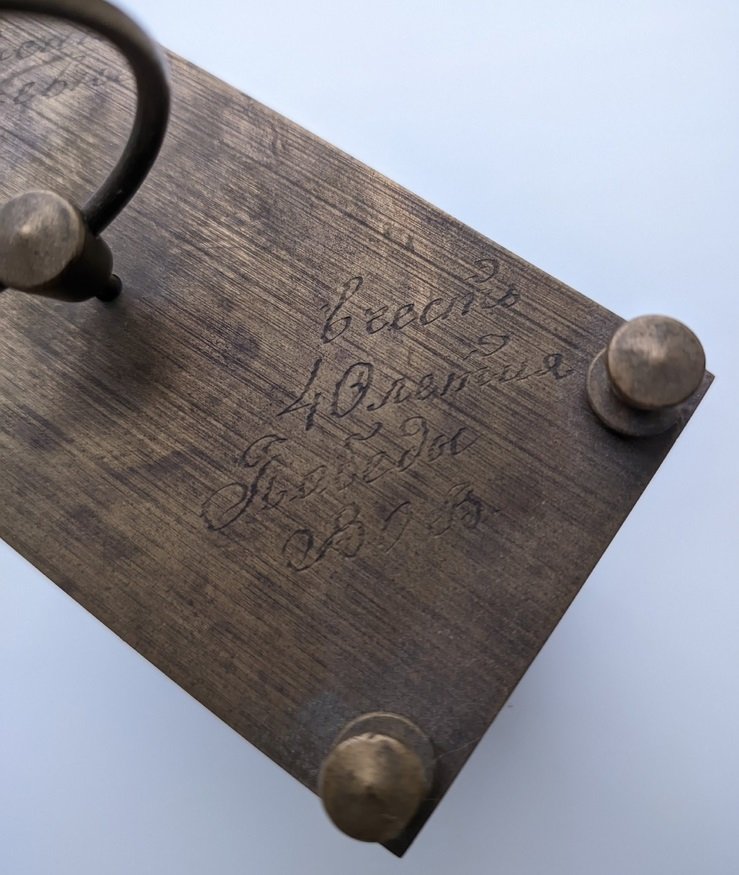 в честь
40 летия
Победы
В О В.